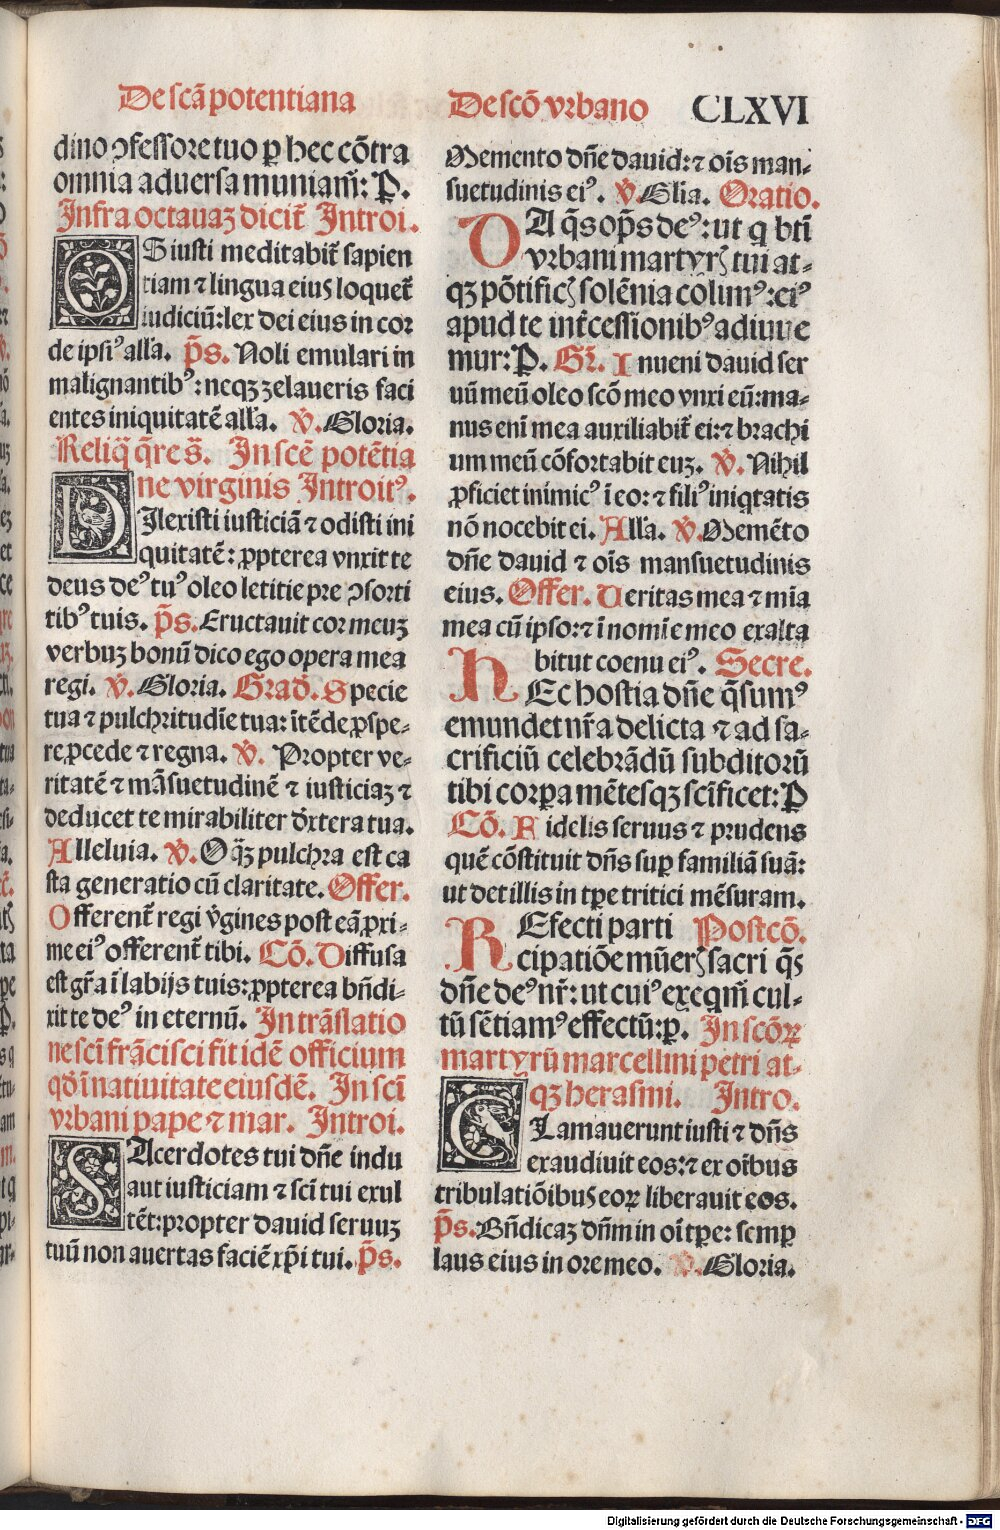 De scã potentiana
De scõ vrbano CLXVI
dino ↄfessore tuo ꝑ hec cõtra
omnia aduersa muniam̃: P̃.
Infra octauaꝫ dicit̃ Introi.
OS iusti meditabit̃ sapien
tiam ⁊ lingua eius loquet̃
iudiciũ: lex dei eius in cor
de ipsiꝰ alła. p̃s. Noli emulari in
malignantibꝰ: neqꝫ zelaueris faci
entes iniquitatẽ alła. Ṽ. Gloria.
Reliq̃ q̃re s̃. In scẽ potẽtia
ne virginis Introitꝰ.
DIlexisti iusticiã ⁊ odisti ini
quitatẽ: ꝓpterea vnxit te
deus deꝰ tuꝰ oleo letitie pre ↄsorti
tibꝰ tuis. p̃s. Eructauit cor meuꝫ
verbuꝫ bonũ dico ego opera mea
regi. Ṽ. Gloria. Grad̃. Specie
tua ⁊ pulchritudĩe tua: ĩtẽde ꝓspe-
re ꝓcede ⁊ regna. Ṽ. Propter ve-
ritatẽ ⁊ mãsuetudinẽ ⁊ iusticiaꝫ ⁊
deducet te mirabiliter d̃xtera tua.
Alleluia. Ṽ. O q̃ꝫ pulchra est ca
sta generatio cũ claritate. Offer.
Offerent̃ regi ṽgines post eã ꝓxi-
me eiꝰ offerent̃ tibi. Cõ. Diffusa
est gr̃a ĩ labijs tuis: ꝓpterea bñdi-
xit te deꝰ in eternũ. In trãslatio
ne scĩ frãcisci fit idẽ officium
qđ ĩ natiuitate eiusdẽ. In scĩ
vrbani pape ⁊ mar. Introi.
SAcerdotes tui dñe indu
aut iusticiam ⁊ scĩ tui exul
tẽt: propter dauid seruuꝫ
tuũ non auertas faciẽ xp̃i tui. p̃s.
Memento dñe dauid: ⁊ oĩs man-
suetudinis eiꝰ. Ṽ. Glia. Oratio.
DA q̃s op̃s deꝰ: ut q bt̃i
vrbani martyrꝭ tui at-
qꝫ põtificꝭ solẽnia colimꝰ: eiꝰ
apud te int̃cessionibꝰ adiuue
mur: P̃. Gr̃. Inueni dauid ser
uũ meũ oleo scõ meo vnxi eũ: ma-
nus enĩ mea auxiliabit̃ ei: ⁊ brachi
um meũ cõfortabit euꝫ. Ṽ. Nihil
ꝓficiet inimicꝰ ĩ eo: ⁊ filiꝰ iniqtatis
nõ nocebit ei. Alla. Ṽ. Memẽto
dñe dauid ⁊ oĩs mansuetudinis
eius. Offer. Veritas mea ⁊ mia
mea cũ ipso: ⁊ ĩ nomĩe meo exalta
bitur cornu eiꝰ. Secre.
HEc hostia dñe q̃sumꝰ
emundet nr̃a delicta ⁊ ad sa-
crificiũ celebrãdũ subditorũ
tibi corꝑa mẽtesqꝫ scĩficet: P̃
Cõ. Fidelis seruus ⁊ prudens
quẽ cõstituit dñs suꝑ familiã suã:
ut det illis in tp̃e tritici mẽsuram.
REfecti parti Postcõ.
cipatiõe mũerꝭ sacri q̃s
dñe deꝰ nr̃: ut cuiꝰ exeqm̃ cul-
tũ sẽtiamꝰ effectũ: ꝑ. In scõꝝ
martyrũ marcellini petri at-
qꝫ herasmi. Intro.
CLamauerunt iusti ⁊ dñs
exaudiuit eos: ⁊ ex oĩbus
tribulatiõibus eoꝝ liberauit eos.
p̃s. Bñdicaꝫ dñm in oĩ tp̃e: semꝑ
laus eius in ore meo. Ṽ. Gloria.
Digitalisierung gefördert durch die Deutsche Forschungsgemeinschaft - DFG